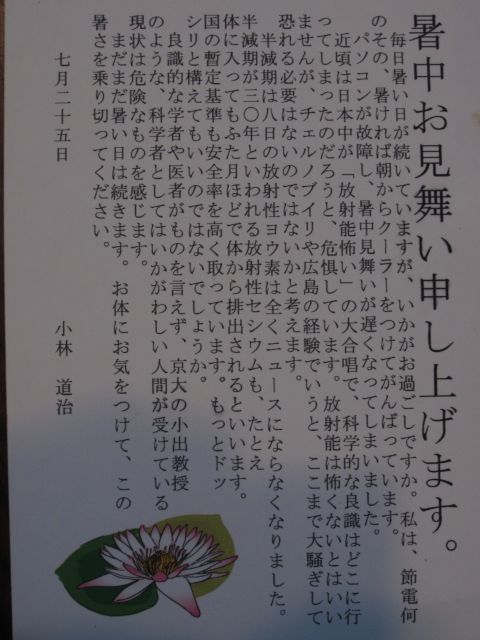 暑中お見舞い申し上げます。
毎日暑い日が続いていますが、いかがお過ごしですか。私は、節電何
のその、暑ければ朝からクーラーをつけてがんばっています。
パソコンが故障し、暑中見舞いが遅くなってしまいました。
近頃は日本中が「放射能怖い」の大合唱で、科学的な良識はどこに行
ってしまったのだろうと、危惧しています。放射能は怖くないとはいい
ませんが、チェルノブイリや広島の経験でいうと、ここまで大騒ぎして
恐れる必要はないのではないかと考えます。
半減期は八日の放射性ヨウ素は全くニュースにならなくなりました。
半減期が三〇年といわれる放射性セシウムも、たとえ
体に入ってもふた月ほどで体から排出されるといいます。
国の暫定基準も安全率を高く取っています。もっとドッ
シリと構えてもいいのではないでしょうか。
良識的な学者や医者がものを言えず、京大の小出教授
のような、科学者としてはいかがわしい人間が受けている
現状は危険なものを感じます。
まだまだ暑い日は続きます。お体にお気をつけて、この
暑さを乗り切ってください。
七月二十五日
小林 道治